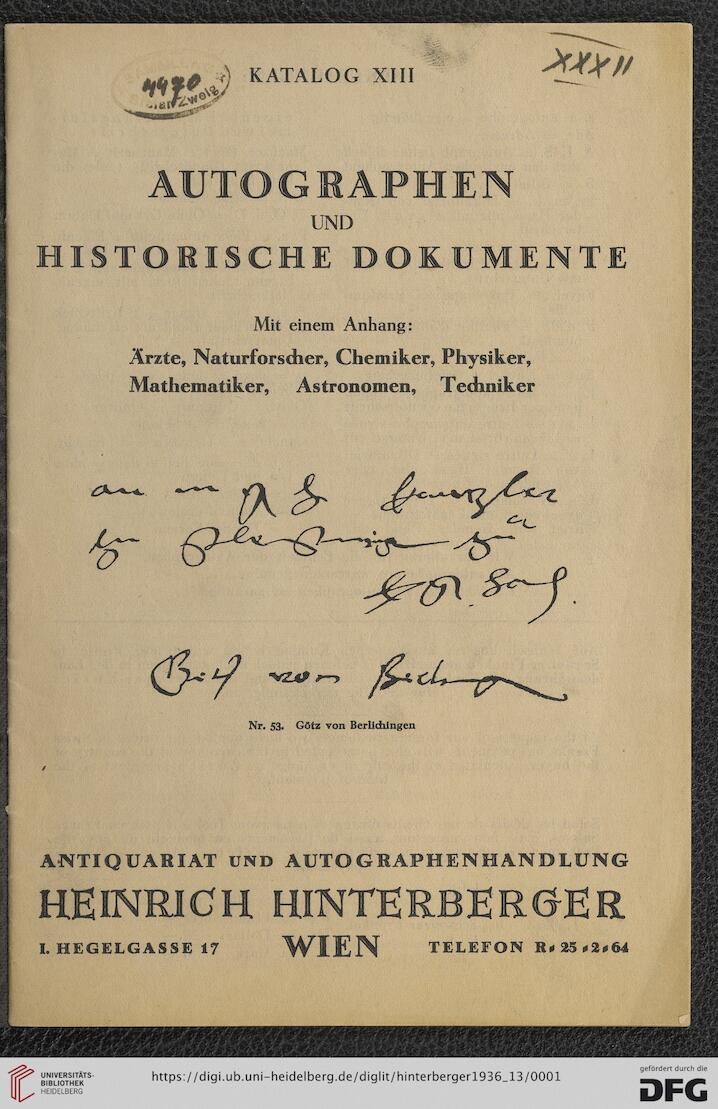 4470
Zweig
KATALOG XIII
XXXII
AUTOGRAPHEN
UND
HISTORISCHE DOKUMENTE
Mit einem Anhang:
Ärzte, Naturforscher, Chemiker, Physiker,
Mathematiker, Astronomen, Techniker
von
Nr. 53. Götz von Berlichingen
ANTIQUARIAT UND AUTOGRAPHENHANDLUNG
HEINRICH HINTERBERGER
I. HEGELGASSE 17 WIEN TELEFON R-25-2-64
UNIVERSITÄTS-
BIBLIOTHEK
HEIDELBERG
https://digi.ub.uni-heidelberg.de/diglit/hinterberger1936_13/0001
gefördert durch die
DFG